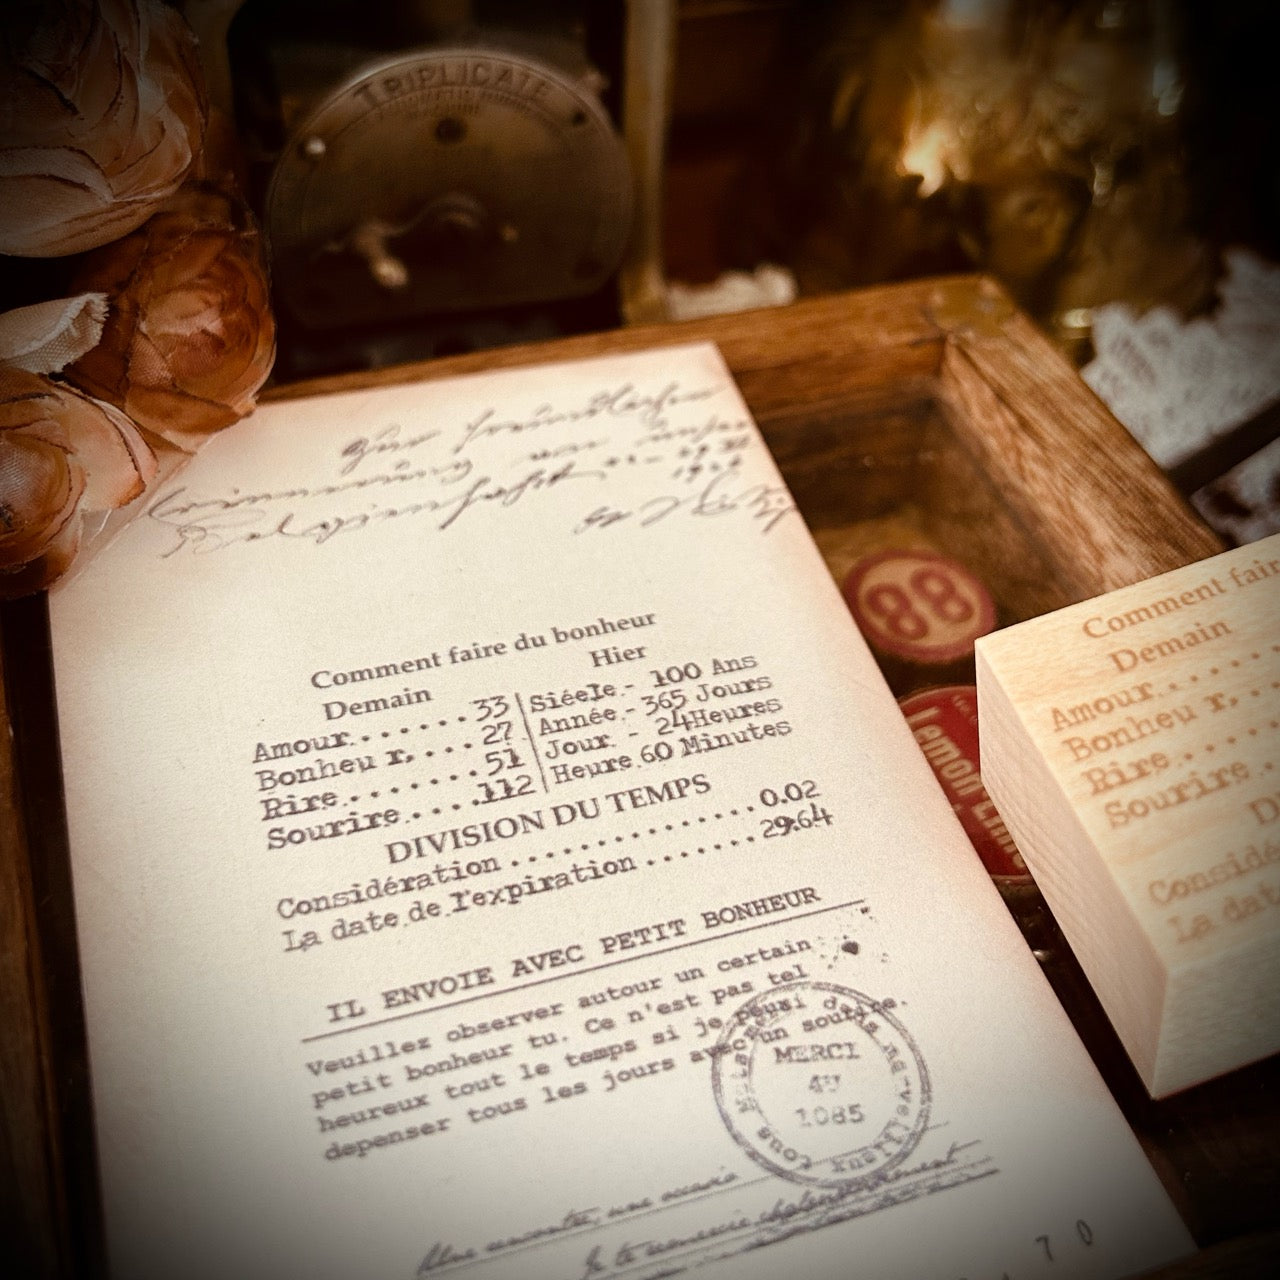 TRIPLICATE
Zur freundlichen
Erinnerung von
Comment faire du bonheur
Demain
Hier
Amour.......33
Bonheu r,....27
Rire........51
Sourire.....112
Siéele.- 100 Ans
Année.-365 Jours
Jour. - 24Heures
Heure.60 Minutes
DIVISION DU TEMPS
Considération ............... 0.02
La date de l'expiration ....... 29.64
IL ENVOIE AVEC PETIT BONHEUR
Veuillez observer autour un certain
petit bonheur tu. Ce n'est pas tel
heureux tout le temps si je peuxi dans
depenser tous les jours avec un sourire.
MERCI
1085
Une rencontre, une occasio
Je te remercie
7 0
88
Lemon Lime
Comment fair
Demain
Amour.......
Bonheu r, ...
Rire.......
Sourire ....
D
Considé
La dat